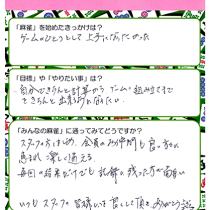 「麻雀」を始めたきっかけは？
ゲームのひとつとして上手になりたかった
「目標」や「やりたい事」は？
自分できちんと計算から ゲーム 組み立てまで
できちんと出来る様になりたい。
「みんなの麻雀」に通ってみてどうですか？
スタッフの方をはじめ、会員のお仲間も良い方々に
恵まれ 楽しく通える。
毎回の結果だけでも 記録に残った方が面白い
いつも スタッフの 皆様 して頂き ありがとう